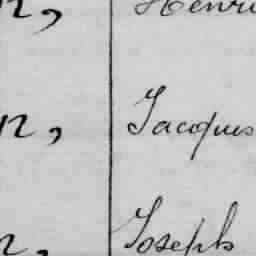 n, Henri
n, Jacques
n, Joseph